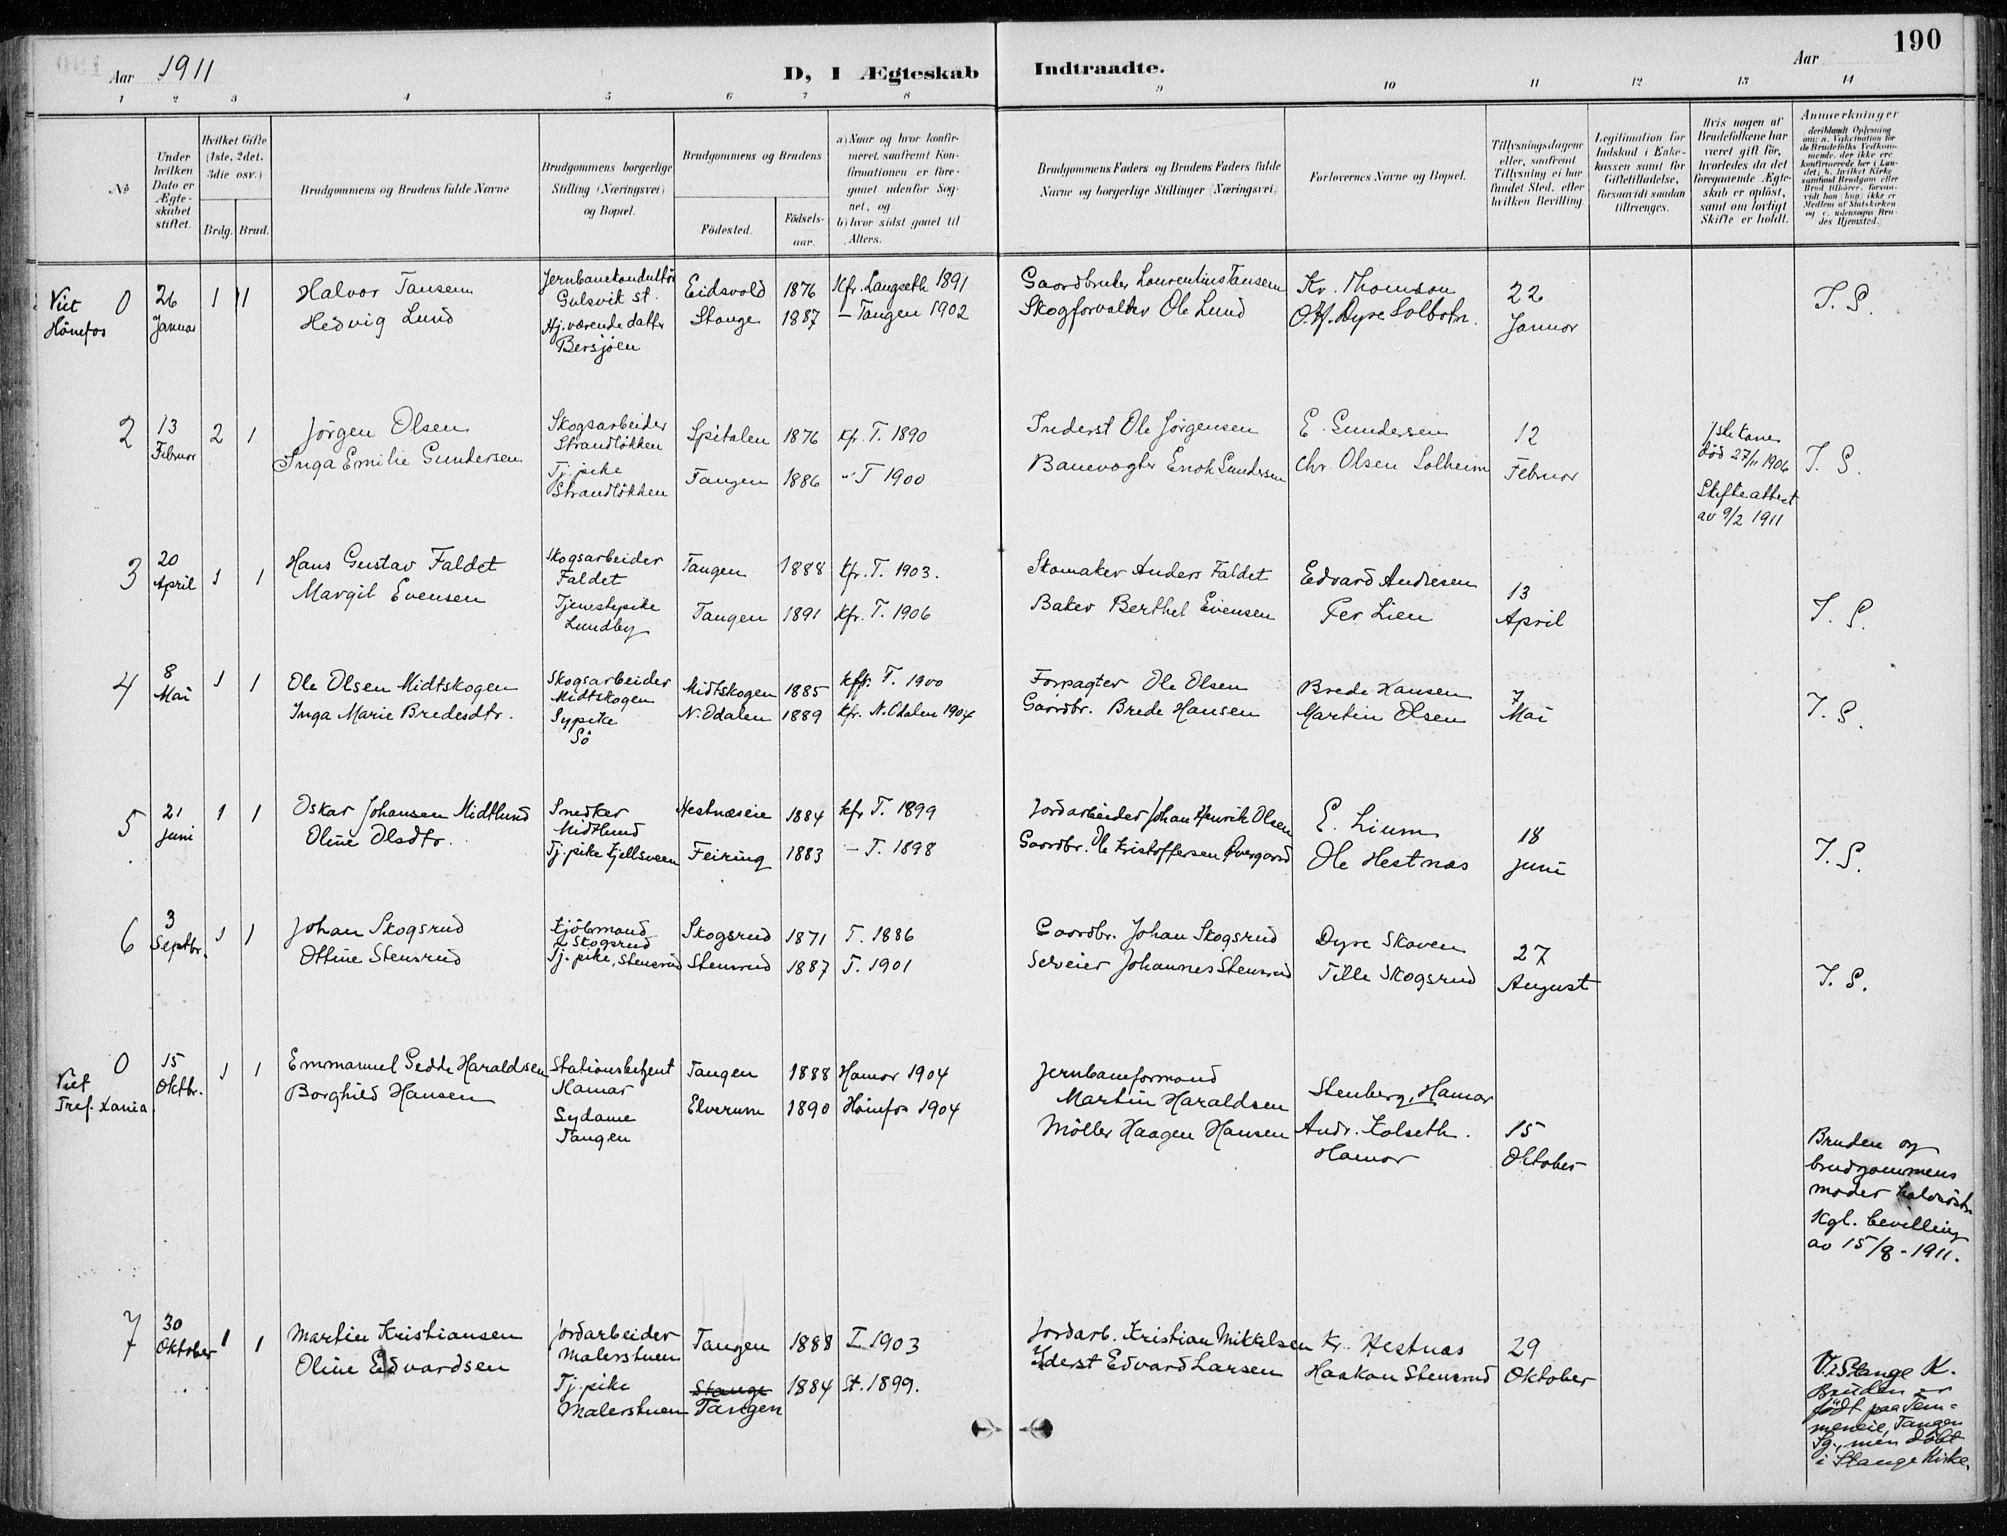 190
Aar 1911
D, I Ægteskab Indtraadte.
Aar
1 2 3 4 5 6 7 8 9 10 11 12 13 14
No
Under hvilken Dato er Ægteskabet stiftet.
Hvilket Gifte (1ste, 2det, 3die osv.)
Brdg. Brud.
Brudgommens og Brudens fulde Navne
Brudgommens borgerlige Stilling (Næringsvei) og Bopæl.
Brudgommens og Brudens
Födested.
Födselsaar.
a) Naar og hvor konfirmeret, samfremt Konfirmationen er foregaaet udenfor Sognet, og
b) hvor sidst gaaet til Alters.
Brudgommens Faders og Brudens Faders fulde Navne og borgerlige Stillinger (Næringsvei)
Forlovernes Navne og Bopæl.
Tillysningsdagene eller, saafremt Tillysning ei har fundet Sted, efter hvilken Bevilling.
Legitimation for Indskud i Enkekassen samt for Giftetilladelse, forsaavidt saadan tiltrænges.
Hvis nogen af Brudefolkene har været gift før, hvorledes da det foregaaende Ægteskab er opløst, samt om lovligt Skifte er holdt.
Anmærkninger
Viet Hönefos
0
26 Januar
1 1
Halvor Tansem
Hedvig Lund
Jernbanekonduktör
Gulsvik st.
Hj. værende datter
Bersjöen
Eidsvold 1876 Kfr. Langseth 1891
Stange 1887 – Tangen 1902
Gaardbruker Laurentius Tansem
Skogforvalter Ole Lund
Kr. Thomson
O. H. Dyre Solbotn.
22 Januar
T. S.
2
13 Februar
2 1
Jörgen Olsen
Inga Emilie Gundersen
Skogsarbeider
Strandlökken
Tj. pike
Strandlökken
Spitalen 1876 kfr. T. 1890
Tangen 1886 –"– T 1900
Inderst Ole Jörgensen
Banevogter Enok Gundersen
E. Gundersen
Chr. Olsen Solheim
12 Februar
1ste kone
död 27/11 1906
Skifteattest
av 9/2 1911
T. S.
3
20 April
1 1
Hans Gustav Faldet
Margit Evensen
Skogsarbeider
Faldet
Tjenestepike
Lundby
Tangen 1888 kfr. T. 1903.
Tangen 1891 Kfr. T. 1906
Skomaker Anders Faldet
Baker Berthel Evensen
Edvard Andresen
Per Lien
13 April
T. S.
4
8 Mai
1 1
Ole Olsen Midtskogen
Inga Marie Bredesdtr.
Skogsarbeider
Midtskogen
Sypike
Sö
Midtskogen 1885 kfr. T. 1900
N. Odalen 1889 kfr. N. Odalen 1904
Forpagter Ole Olsen
Gaardbr. Brede Hansen
Brede Hansen
Martin Olsen
7 Mai
T. S.
5
21 Juni
1 1
Oskar Johansen Midtlund
Oline Olsdtr.
Snedker
Midtlund
Tj. pike Kjellsveen
Hestnæseie 1884 kfr. T. 1899
Feiring 1883 – T. 1898
Jordarbeider Johan Henrik Olsen
Gaardbr. Ole Kristoffersen Övergaard
E. Lium
Ole Hestnæs
18 Juni
T. S.
6
3 Septbr.
1 1
Johan Skogsrud
Ottine Stensrud
Kjöbmand
Skogsrud
Tj. pike, Stensrud
Skogsrud 1871 T. 1886
Stensrud 1887 T. 1901
Gaardbr. Johan Skogsrud
Selveier Johannes Stensrud
Dyre Skaven
Tille Skogsrud
27 August
T. S.
0
Viet
Tref. Xania.
15 Oktbr.
1 1
Emmanuel Gedde Haraldsen
Borghild Hansen
Stationsbetjent
Hamar
Sydame
Tangen
Tangen 1888 Hamar 1904
Elverum 1890 Hönefos 1904
Jernbaneformand
Martin Haraldsen
Möller Haagen Hansen
Stenberg, Hamar
Andr. Kolseth.
Hamar
15 Oktober
Bruden og
brudgommens
moder halvsöstre
Kgl. bevilling
av 15/8 - 1911.
7
30 Oktober
1 1
Martin Kristiansen
Oline Edvardsen
Jordarbeider
Malerstuen
Tj. pike
Malerstuen
Tangen 1888 T. 1903
Stange 1884 St. 1899.
Tangen
Jordarb. Kristian Mikkelsen
Inderst Edvard Larsen
Kr. Hestnæs
Haakon Stensrud
29 Oktober
V. i Stange K.
Bruden er
födt paa Tem=
meneie, Tangen
Sg., men döbt
i Stange Kirke.